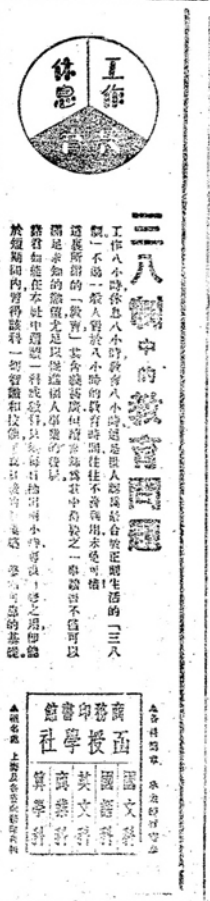 工作
休息
教育
三八制中的教育問題
工作八小時休息八小時教育八小時這是世人認為最合於正常生活的「三八
制」不過一般人對於八小時的教育時間往往不善利用未免可惜
這裏所謂的「教育」其含義甚廣但讀書為其中最要之一事讀書不僅可以
滿足求知的慾望尤足以促進個人事業的發展
諸君如能在本社中選讀一科或數科只須每日抽出兩小時之用即能
於短期間內習得該科一切智識和技能的基礎。
▲各科簡章 承索即行寄奉
商務印書館
函授學社
國文科
國語科
英文科
商業科
算學科
▲報名處 上海及各省商務印書館